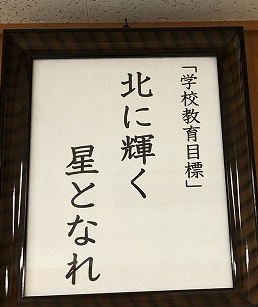 「学校教育目標」
北に輝く
星となれ